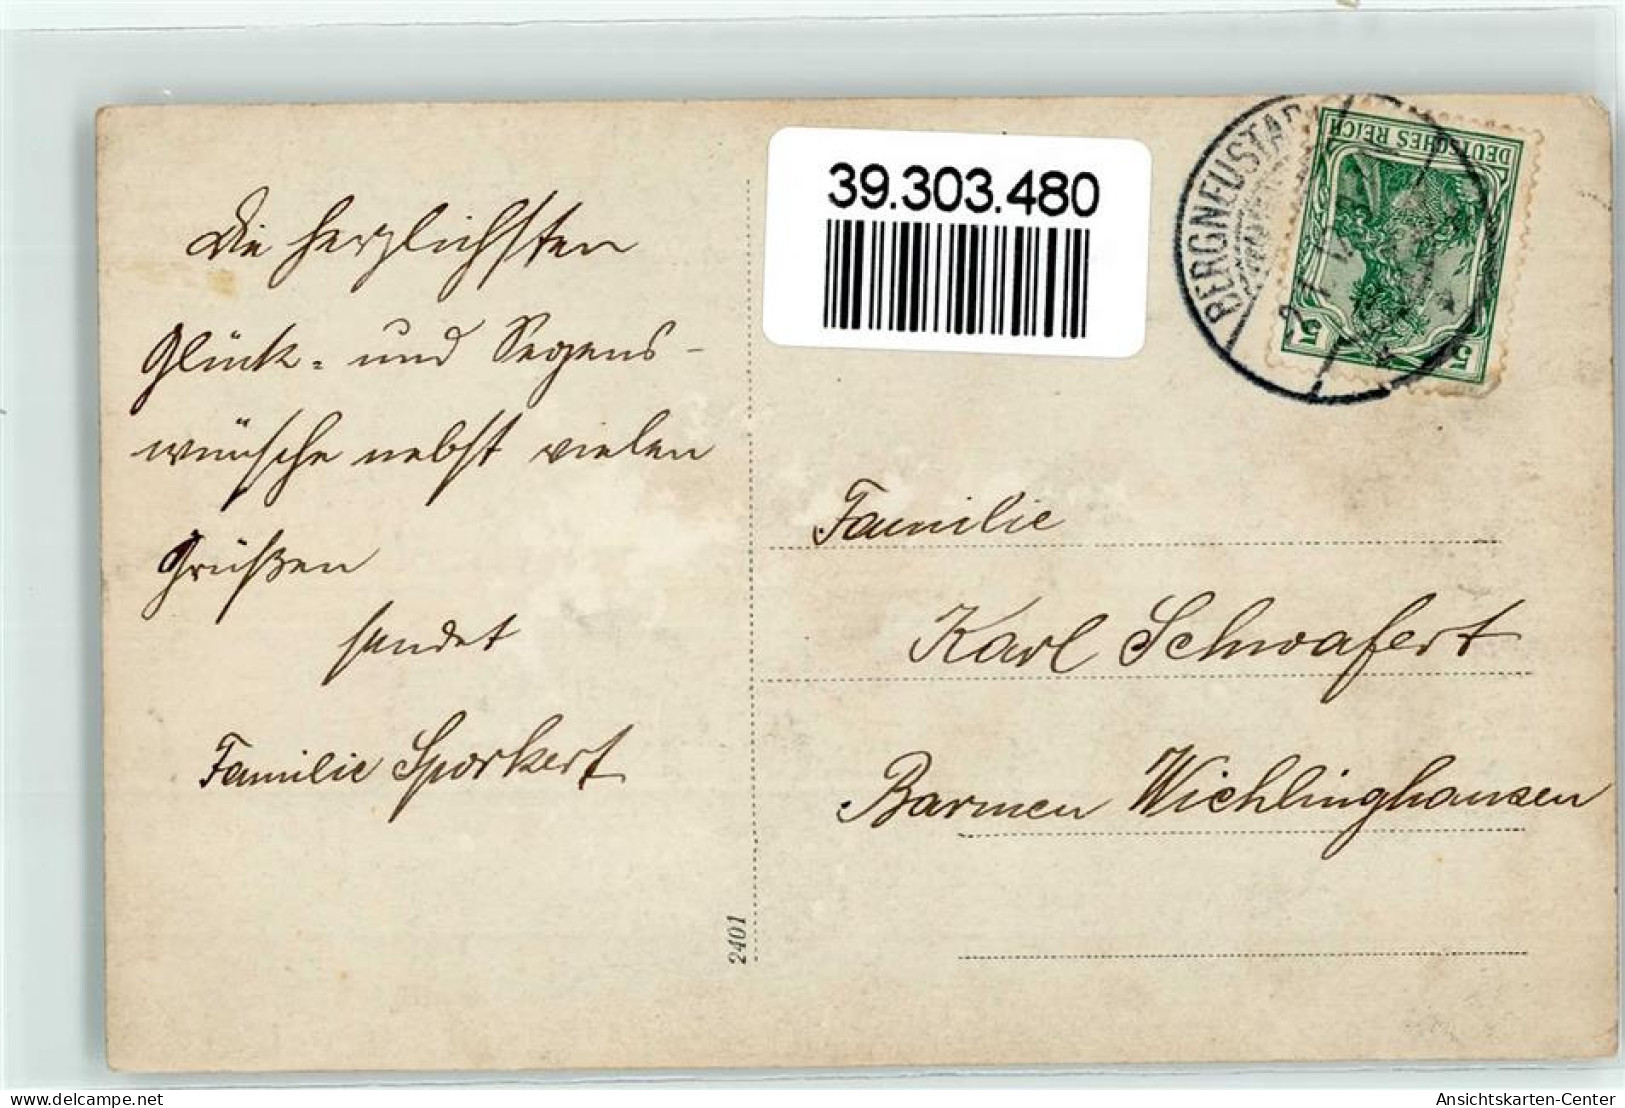 Die herzlichsten
Glück- und Segens-
wünsche nebst vielen
Grüßen
sendet
Familie Sporkert
2401
39.303.480
BERGNEUSTAD
DEUTSCHES REICH
5 5
Familie
Karl Schwafert
Barmen Wichlinghausen
www.delcampe.net/ma-cp
Ansichtskarten-Center